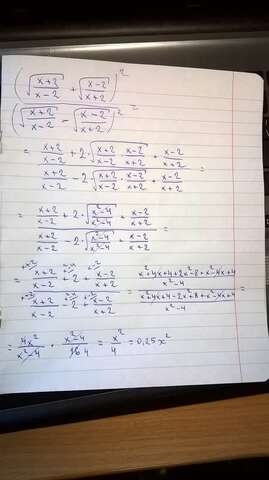 (√((x+2)/(x-2)) + √((x-2)/(x+2)))²
(√((x+2)/(x-2)) - √((x-2)/(x+2)))² =
= ((x+2)/(x-2) + 2·√((x+2)/(x-2)·(x-2)/(x+2)) + (x-2)/(x+2))
((x+2)/(x-2) - 2√((x+2)/(x-2)·(x-2)/(x+2)) + (x-2)/(x+2)) =
= ((x+2)/(x-2) + 2·√((x²-4)/(x²-4)) + (x-2)/(x+2))
((x+2)/(x-2) - 2·√((x²-4)/(x²-4)) + (x-2)/(x+2)) =
= ((x+2)/(x-2) + 2 + (x-2)/(x+2)) = (x²+4x+4+2x²-8+x²-4x+4)/(x²-4)
((x+2)/(x-2) - 2 + (x-2)/(x+2)) (x²+4x+4-2x²+8+x²-4x+4)/(x²-4) =
= 4x²/(x²-4) · (x²-4)/(16) = x²/4 = 0,25x²